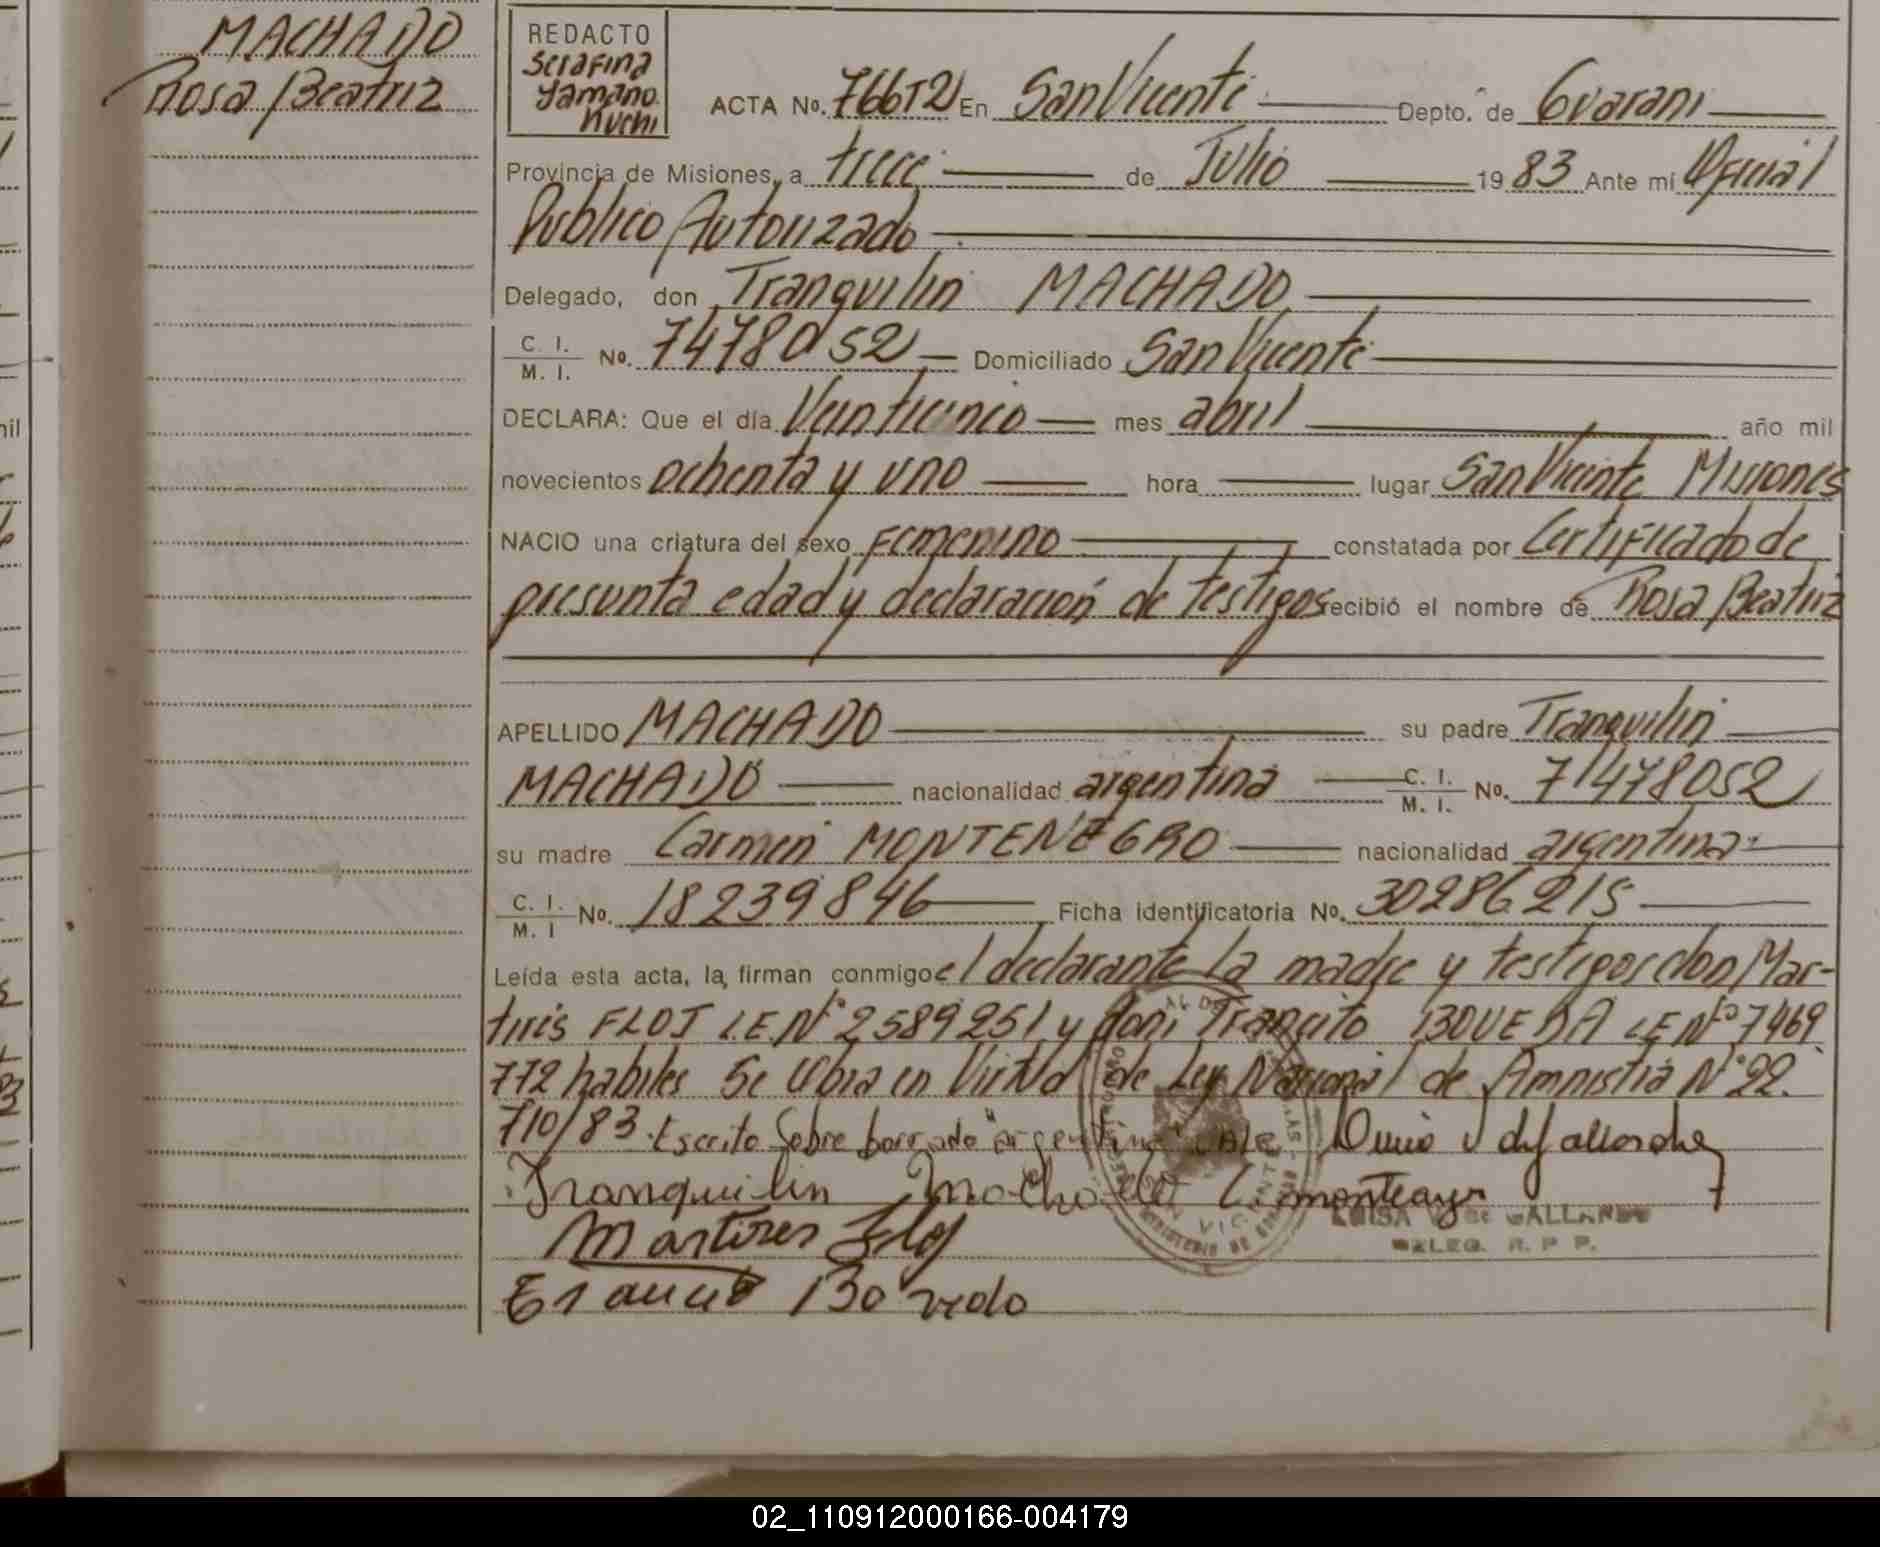 MACHADO
Rosa Beatriz
REDACTO
Serafina
Yamano
Kuchi
ACTA No. 766T2 En San Vicente Depto. de Guarani
Provincia de Misiones, a trece de Julio 1983 Ante mí Oficial
Publico Autorizado
Delegado, don Tranquilin MACHADO
C. I. / M. I. No. 7478052 Domiciliado San Vicente
DECLARA: Que el día Veinticinco mes abril año mil
novecientos ochenta y uno hora lugar San Vicente Misiones
NACIO una criatura del sexo Femenino constatada por Certificado de
presunta edad y declaración de testigos recibió el nombre de Rosa Beatriz
APELLIDO MACHADO su padre Tranquilin
MACHADO nacionalidad argentina C. I. / M. I. No. 7478052
su madre Carmen MONTENEGRO nacionalidad argentina
C. I. / M. I No. 18239846 Ficha identificatoria No. 30286215
Leída esta acta, la firman conmigo el declarante la madre y testigos don Mar-
tires FLOJ L.E.N° 2589251 y don Transito BOVEDA LE N° 7469
772 habiles Se labra en Virtud de Ley Nacional de Amnistia N° 22.
710/83. Escrito Sobre borrado "argentina" Vale
Tranquilin Machado C montenegro
SAN VICENTE
LUISA V. de GALLARDO
DELEG. R. P. P.
Martires Floj
Boveda
02_110912000166-004179